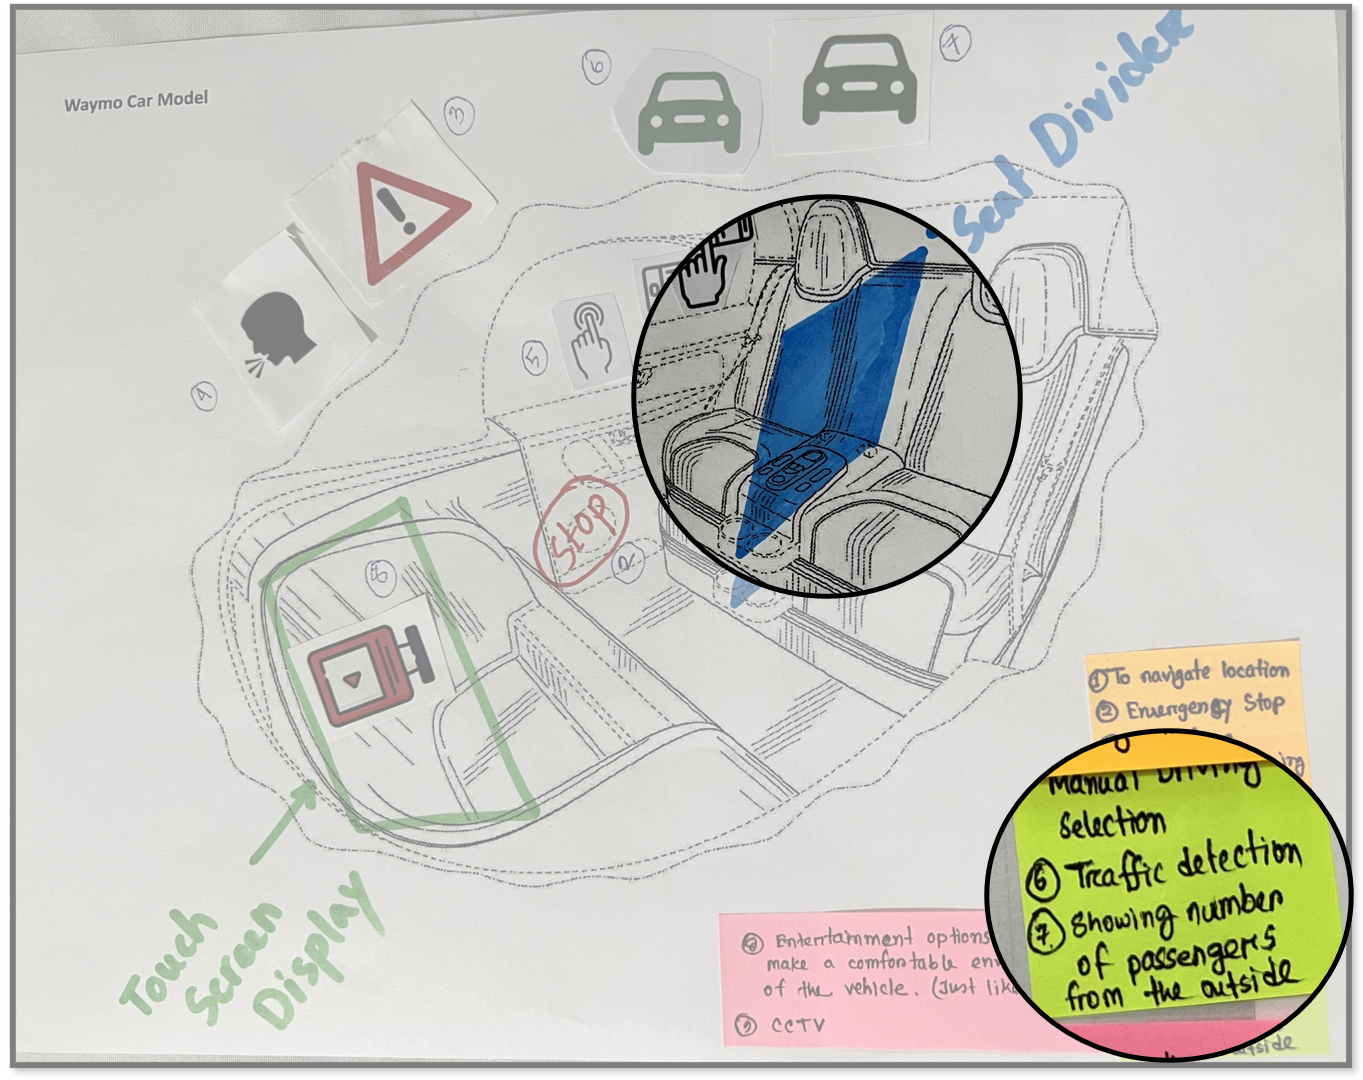 Waymo Car Model
3
6
7
Seat Divider
4
5
Stop
2
Touch
Screen
Display
① To navigate location
② Emergency Stop
ing
Manual Driving
Selection
⑥ Traffic detection
⑦ Showing number
of passengers
from the outside
⑧ Entertainment options
make a comfortable
of the vehicle. (Just like
⑨ CCTV
outside